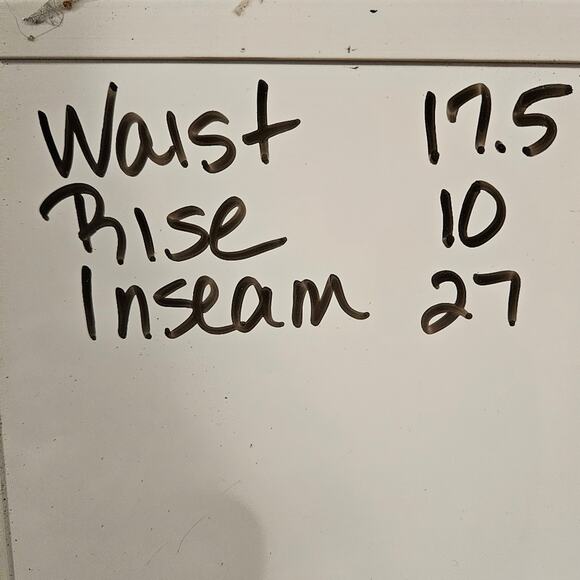 Waist 17.5
Rise 10
Inseam 27